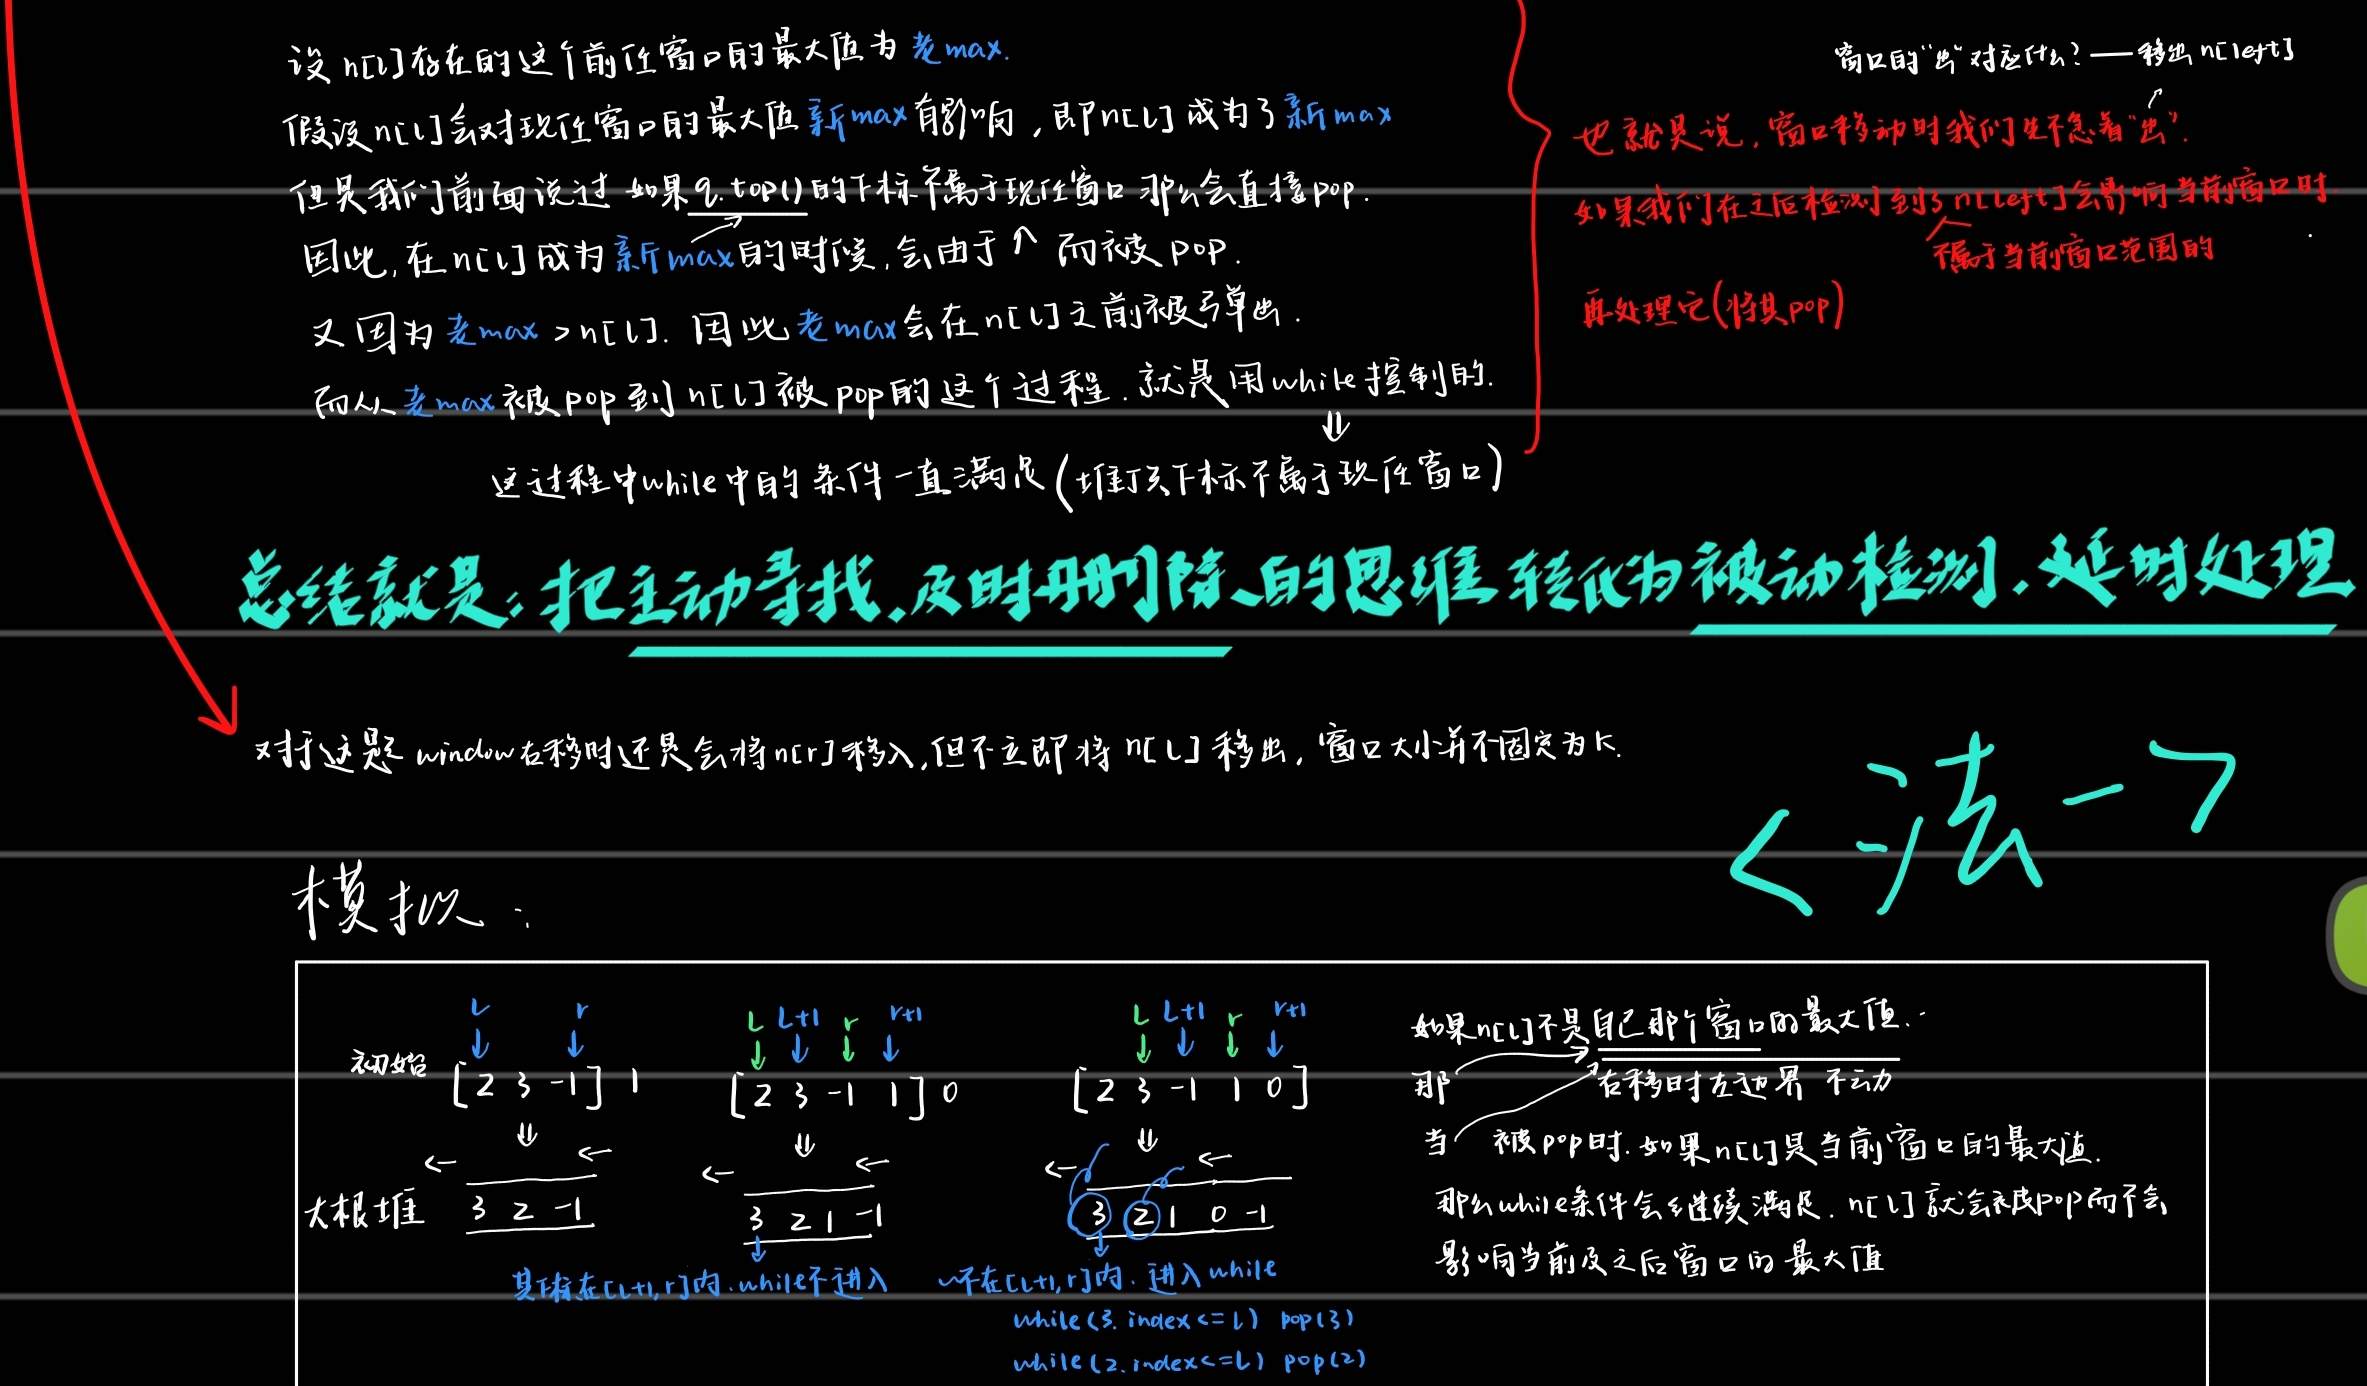 设n[l]存在的这个前任窗口的最大值为老max.
假设n[l]会对现任窗口的最大值新max有影响，即n[l]成为了新max
但是我们前面说过 如果q.top()的下标不属于现任窗口 那么会直接pop.
因此,在n[l]成为新max的时候,会由于↑而被pop.
又因为老max>n[l].因此老max会在n[l]之前被弹出.
而从老max被pop到n[l]被pop的这个过程.就是用while控制的.
⇓
这过程中while中的条件一直满足(堆顶下标不属于现任窗口)
窗口的"出"对应什么?——移出n[left]
也就是说,窗口移动时我们先不急着"出".
如果我们在之后检测到了n[left]会影响当前窗口时
不属于当前窗口范围的
再处理它(将其pop)
总结就是:把主动寻找、及时删除、的思维转化为被动检测.延时处理
对于这题window右移时还是会将n[r]移入,但不立即将n[l]移出,窗口大小并不固定为k.
<法一>
模拟:
L r
初始 [2 3 -1] 1
⇓
← ←
大根堆 3 2 -1
L L+1 r r+1
[2 3 -1 1] 0
⇓
← ←
3 2 1 -1
其下标在[L+1,r]内.while不进入
L L+1 r r+1
[2 3 -1 1 0]
⇓
← ←
3 2 1 0 -1
~不在[L+1,r]内.进入while
while(3.index<=l) pop(3)
while(2.index<=L) pop(2)
如果n[l]不是自己那个窗口的最大值..
那 右移时左边界不动
当 被pop时.如果n[l]是当前窗口的最大值.
那么while条件会继续满足.n[l]就会被pop而不会
影响当前及之后窗口的最大值